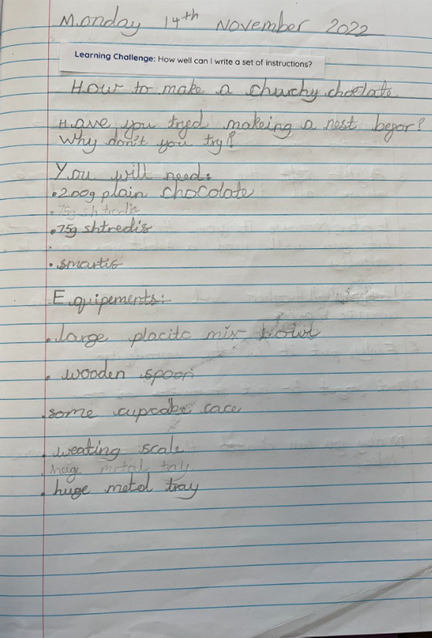 Monday 14th November 2022
Learning Challenge: How well can I write a set of instructions?
How to make a chunchy choclate
Have you tryed makeing a nest befor?
Why don't you try?
You will need:
•200g plain chocolate
•75g shtredis
•75g shtredis
•
•smartis
Equipements:
•large placitc mix bowl
•wooden spoon
•some cupcake cace
•weating scale
huge metal tay
•huge metal tray